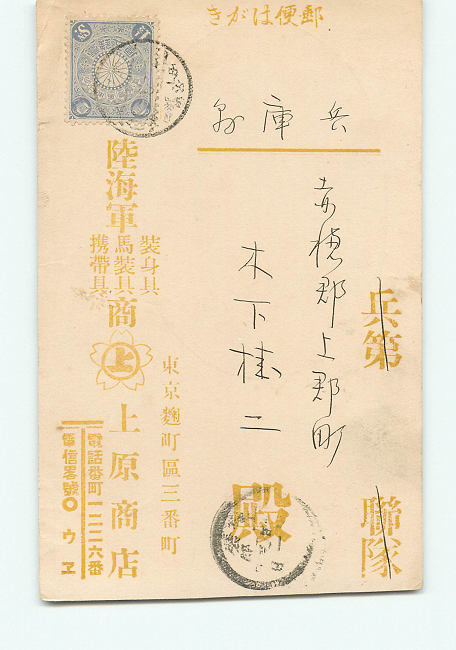 郵便はがき
兵庫縣
兵第
聯隊
赤穂郡上郡町
木下桂二
殿
陸海軍
裝身具
馬裝具
携帶具
商
上
上原商店
東京麹町區三番町
電話番町一二二六番
電信畧號〇ウヱ